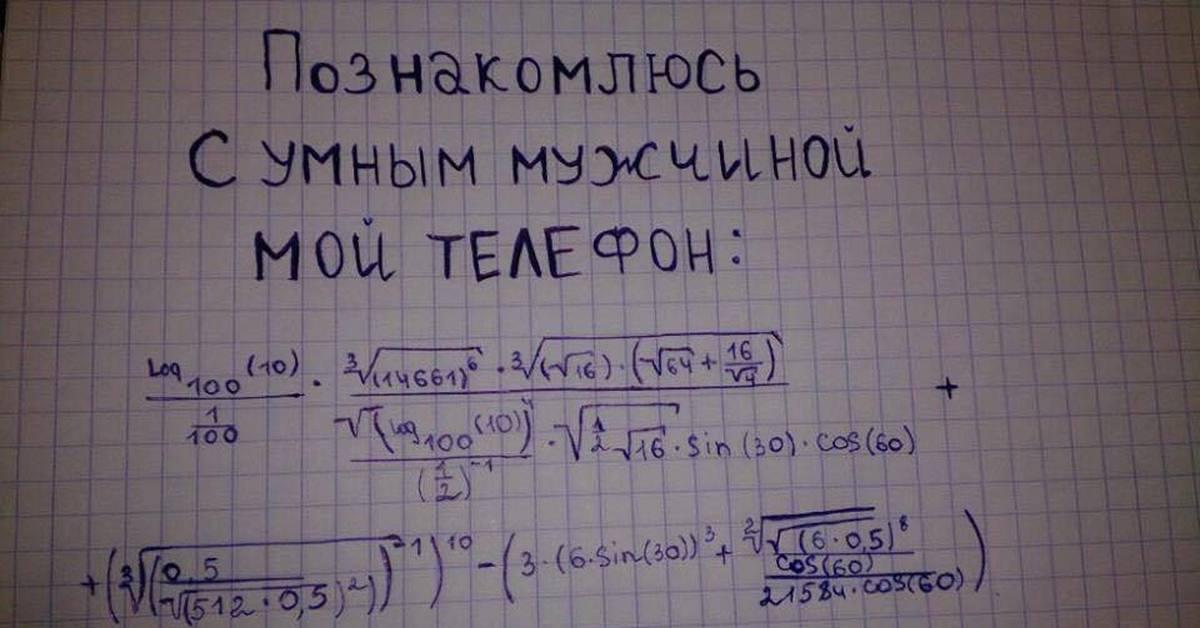 Познакомлюсь
с умным мужчиной
мой телефон:
log₁₀₀(10) / (1/100) · (³√(14661)⁶ · ³√((√16)·(√64 + 16/√4))) / ((√(log₁₀₀(10))⁴ / (1/2)⁻¹) · √(1/2 √16) · sin(30) · cos(60)) +
+ (³√((0,5 / √(512·0,5)²))⁻¹)¹⁰ − (3·(6·sin(30))³ + ²√(√(6·0,5)⁸ / cos(60)) / 21584·cos(60))